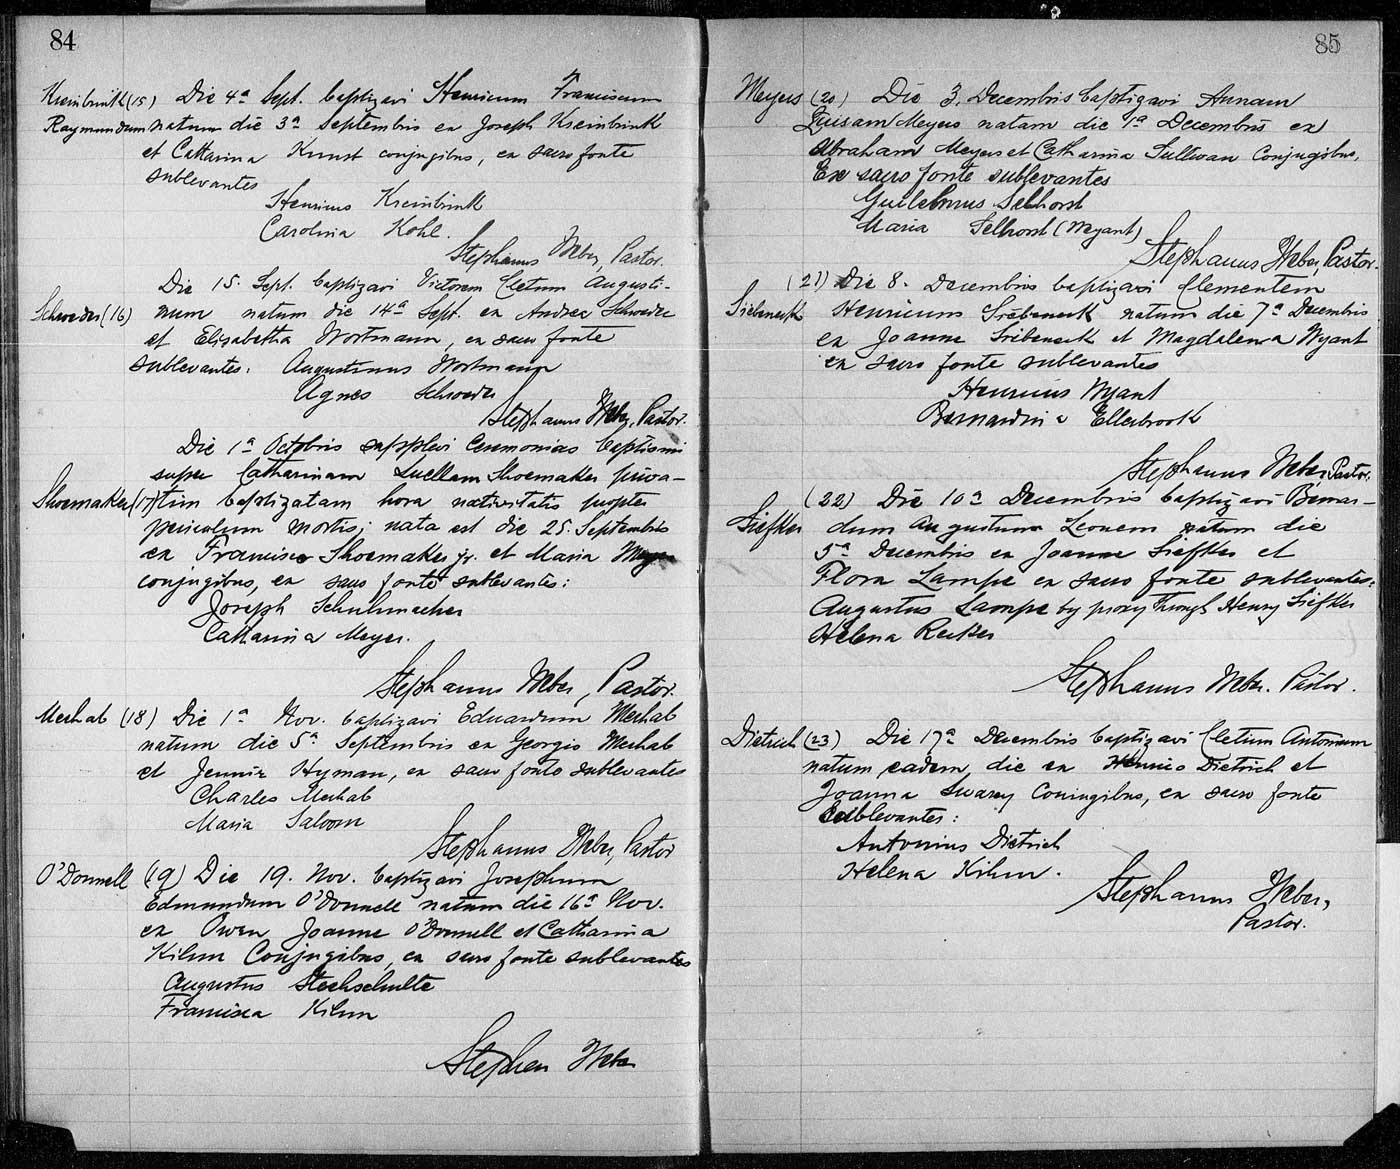 84
Kreinbrink (15) Die 4ª Sept. baptizavi Henricum Franciscum
Raymundum natum die 3ª Septembris ex Joseph Kreinbrink
et Catharina Kunst conjugibus, ex sacro fonte
sublevantes
Henricus Kreinbrink
Carolina Kohl.
Stephanus Weber, Pastor.
Die 15. Sept. baptizavi Victorem Cletum Augusti-
Schroeder (16) num natum die 14ª Sept. ex Andrea Schroeder
et Elisabetha Wortmann, ex sacro fonte
sublevantes: Augustinus Wortmann
Agnes Schroeder
Stephanus Weber, Pastor.
Die 1ª Octobris supplevi Ceremonias baptismi
super Catharinam Luellam Shoemaker priva-
Shoemaker (17) tim baptizatam hora nativitatis propter
periculum mortis; nata est die 25. Septembris
ex Francisco Shoemaker jr. et Maria Meyer
conjugibus, ex sacro fonte sublevantes:
Joseph Schuhmacher
Catharina Meyer.
Stephanus Weber, Pastor.
Merhab (18) Die 1ª Nov. baptizavi Eduardum Merhab
natum die 5ª Septembris ex Georgio Merhab
et Jennie Hyman, ex sacro fonte sublevantes
Charles Merhab
Maria Saloom
Stephanus Weber, Pastor
O'Donnell (19) Die 19. Nov. baptizavi Josephum
Edmundum O'Donnell natum die 16ª Nov.
ex Owen Joanne O'Donnell et Catharina
Kihm Conjugibus, ex sacro fonte sublevantes
Augustus Stechschulte
Francisca Kihm
Stephen Weber
85
Meyers (20) Die 3. Decembris baptizavi Annam
Luisam Meyers natam die 1ª Decembris ex
Abraham Meyers et Catharina Sullivan Conjugibus,
Ex sacro fonte sublevantes
Guilelmus Selhorst
Maria Selhorst (Wyant)
Stephanus Weber, Pastor.
(21) Die 8. Decembris baptizavi Clementem
Siebeneck Henricum Siebeneck natum die 7ª Decembris
ex Joanne Siebeneck et Magdalena Wyant
ex sacro fonte sublevantes
Henricus Wyant
Bernardina Ellerbrock
Stephanus Weber, Pastor.
(22) Die 10ª Decembris baptizavi Bernar-
Siefker dum Augustum Leonem natum die
5ª Decembris ex Joanne Siefker et
Flora Lampe ex sacro fonte sublevantes:
Augustus Lampe by proxy through Henry Siefker
Helena Recker
Stephanus Weber. Pastor.
Dietrich (23) Die 17ª Decembris baptizavi Cletum Antonium
natum eadem die ex Henrico Dietrich et
Joanna Swarey Coniugibus, ex sacro fonte
sublevantes:
Antonius Dietrich
Helena Kihm.
Stephanus Weber,
Pastor.